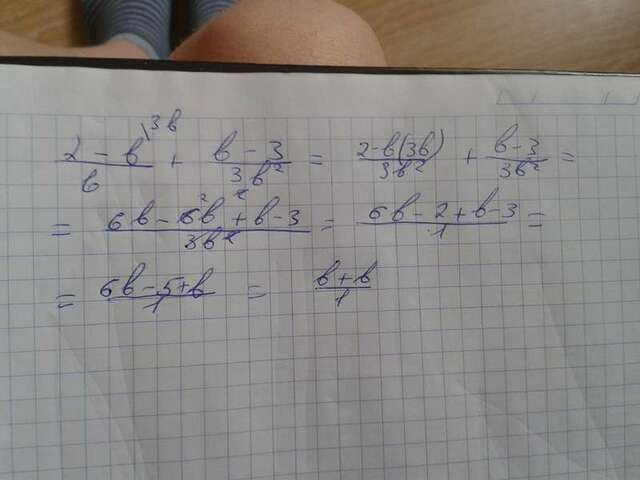 (2 - b)/b \3b + (b - 3)/(3b²) = (2 - b(3b))/(3b²) + (b - 3)/(3b²) =
= (6b - 6b² + b - 3)/(3b²) = (6b - 2 + b - 3)/1 =
= (6b - 5 + b)/1 = (b + b)/1